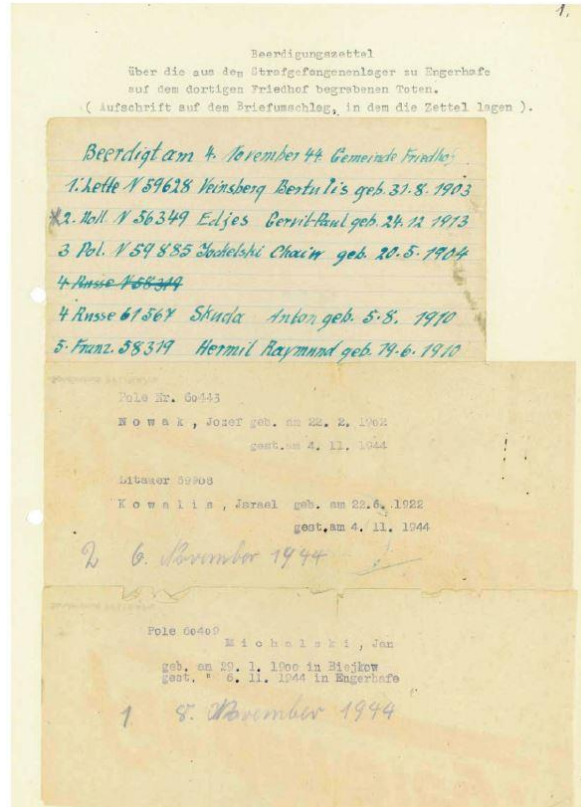 1.
Beerdigungszettel
über die aus dem Strafgefangenenlager zu Engerhafe
auf dem dortigen Friedhof begrabenen Toten.
( Aufschrift auf dem Briefumschlag, in dem die Zettel lagen ).
Beerdigt am 4. November 44. Gemeinde Friedhof
1. Lette N 59628 Veinsberg Bertulis geb. 31.8.1903
2. Holl. N 56349 Edjes Gerrit-Paul geb. 24.12 1913
3 Pol. N 59885 Jockelski Chaim geb. 20.5.1904
4 Russe N 58319
4 Russe 61567 Skuda Anton geb. 5.8. 1910
5. Franz. 58319 Hermil Raymund geb. 19.6.1910
Pole Nr. 60443
Nowak, Jozef geb. am 22. 2.
gest. am 4. 11. 1944
Litauer 59908
Kowalis, Israel geb. am 22.6. 1922
gest. am 4. 11. 1944
2 6. November 1944
Pole 60409
Michalski, Jan
geb. am 29. 1. 1900 in Biejkow
gest. " 6. 11. 1944 in Engerhafe
1 8. November 1944